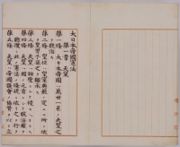 大日本帝國憲法
第一章 天皇
第一條 大日本帝國ハ萬世一系ノ天皇之ヲ
統治ス
第二條 皇位ハ皇室典範ノ定ムル所ニ依
リ皇男子孫之ヲ繼承ス
第三條 天皇ハ神聖ニシテ侵スヘカラス
第四條 天皇ハ國ノ元首ニシテ統治權ヲ
總攬シ此ノ憲法ノ條規ニ依リ之ヲ行フ
第五條 天皇ハ帝國議會ノ協贊ヲ以テ立